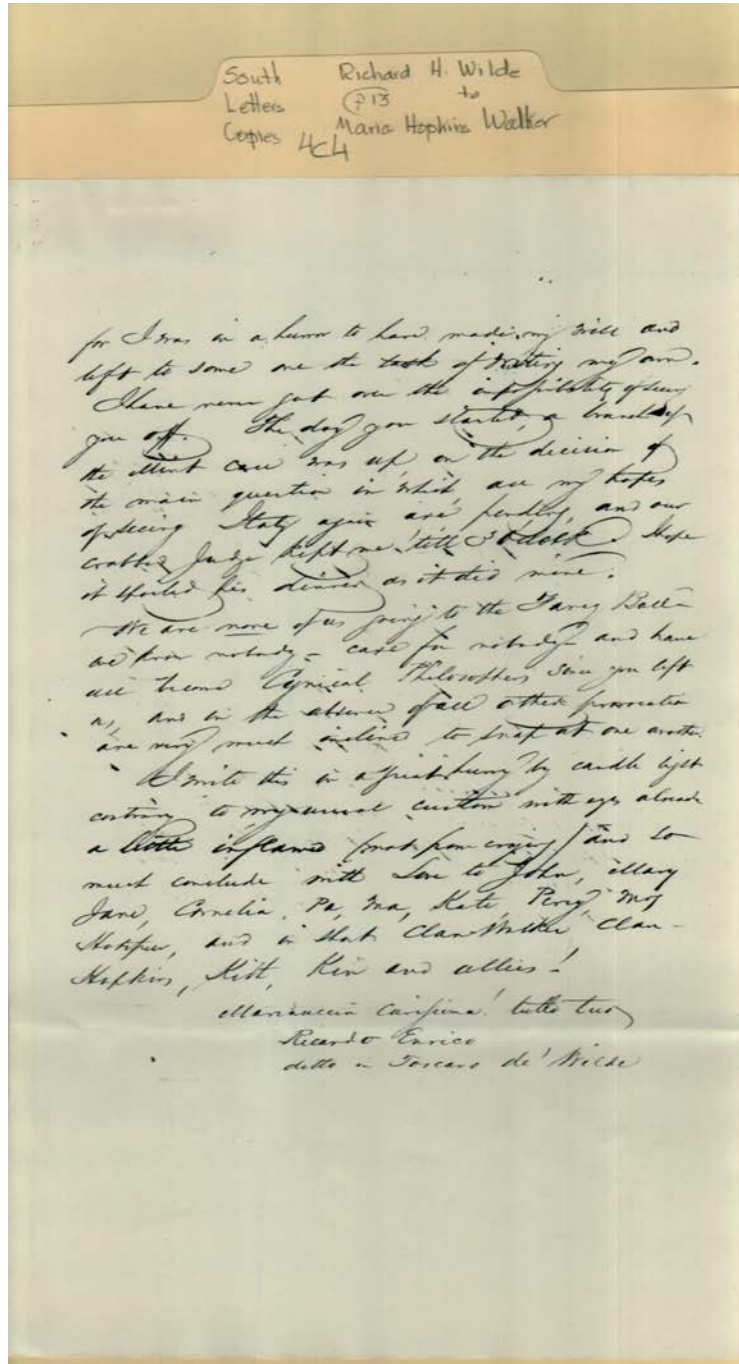 South Richard H. Wilde
Letters P 13 to
Copies Maria Hopkins Walker
4C4
for I was in a humor to have made my Will and
left to some one the task of writing my own.
I have never got over the impossibility of seeing
you off. The day you started, a branch of
the Mint case was up, on the decision of
the main question in which all my hopes
of seeing Italy again are pending, and our
crabbed Judge kept me till 3 o'clock. I hope
it spoiled his dinner as it did mine.
We are none of us going to the Fancy Ball –
we know nobody – care for nobody – and have
all become Cynical Philosophers since you left
us, and in the absence of all other provocation
are very much inclined to snap at one another.
I write this in a great hurry by candle light
contrary to my usual custom with eyes already
a little inflamed (not from crying) and so
must conclude with Love to John, Mary
Jane, Cornelia, Pa, Ma, Kate, Percy,
Hotspur, and in short Clan-Walker Clan-
Hopkins, Kith, Kin and allies!
Mariuccia Carissima! tutto tuo
Ricardo Enrico
detto in Toscano de' Wilde